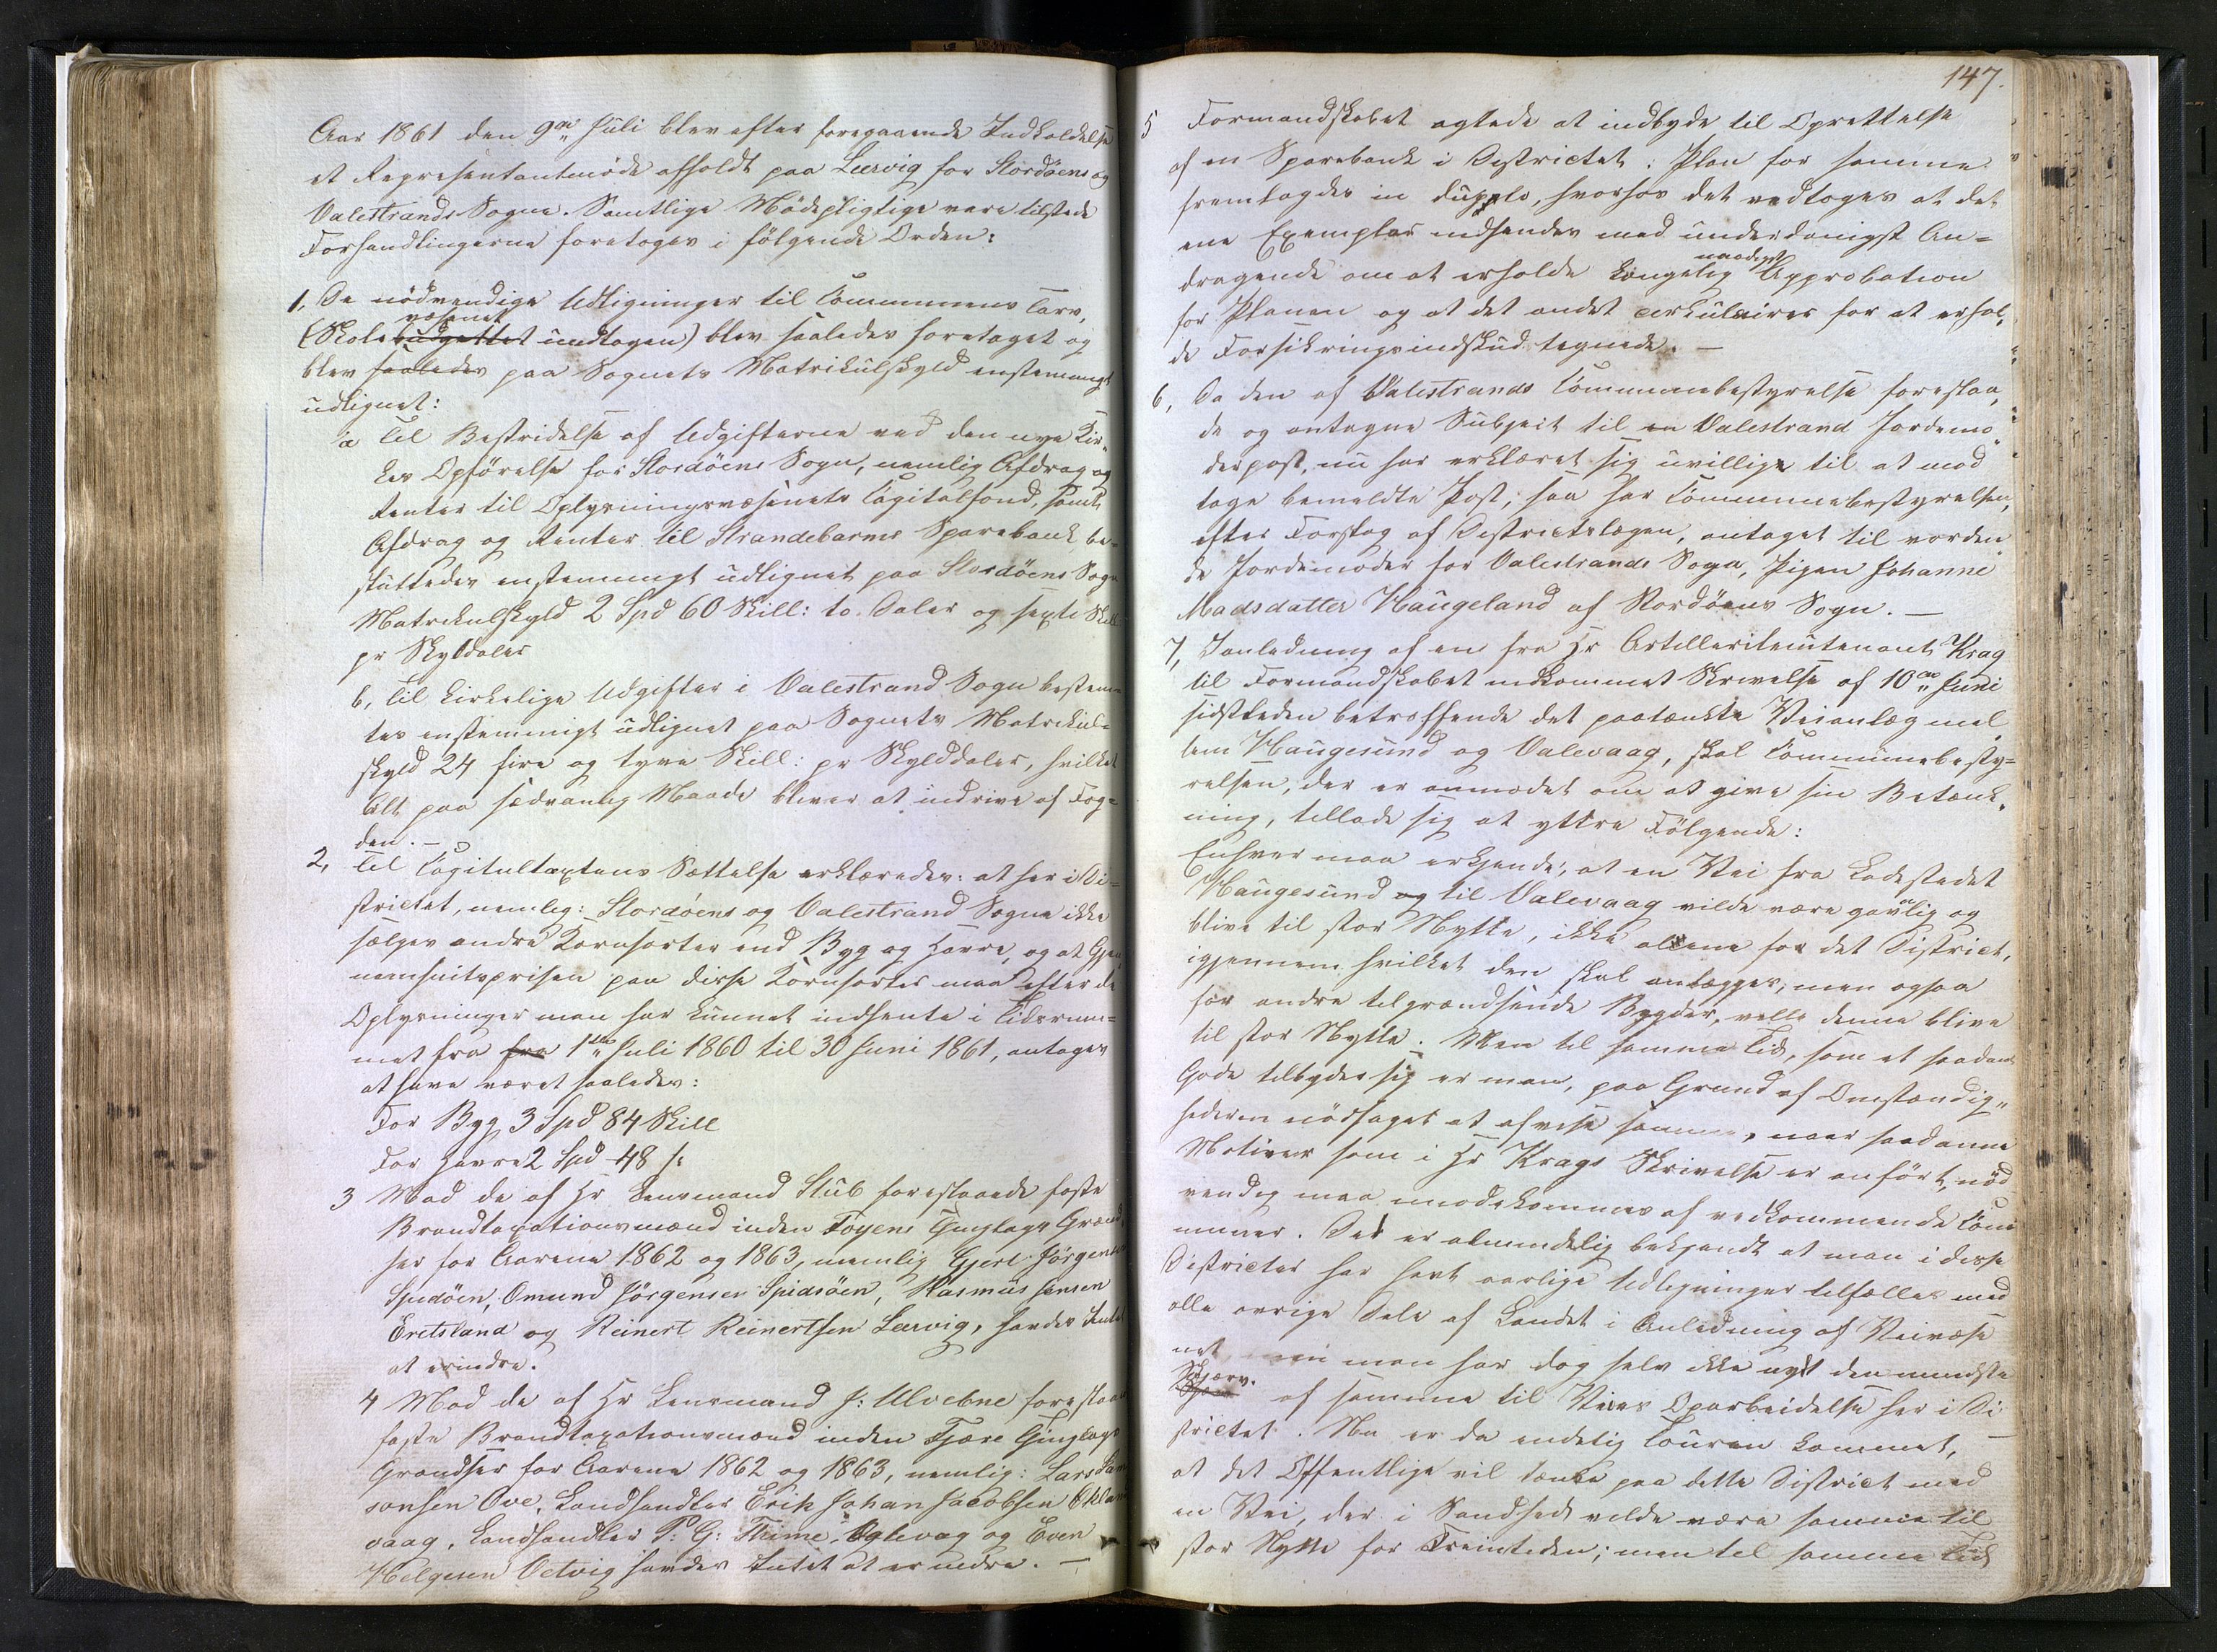 Aar 1861 den 9de Juli blev efter foregaaende Indkaldelse
et Repræsentantmøde afholdt paa Leervig for Stordøens og
Valestrands Sogne. Samtlige Mødepligtige vare tilstede
Forhandlingerne foretoges i følgende Orden:
1. De nödvendige Udligninger til Communens Tarv,
væsenet
(Skolebudgettet undtagen) blev saaledes foretaget og
blev saaledes paa Sognets Matrikulskyld enstemmigt
udlignet:
a Til Bestridelse af Udgifterne ved den nye Kir-
kes Opförelse for Stordöens Sogn, nemlig Afdrag og
Renter til Oplysningsvæsenets Capitalfond, samt
Afdrag og Renter til Strandebarms Sparebank, be-
sluttedes enstemmigt udlignet paa Stordöens Sogns
Matrikulskyld 2 Spd 60 Skill: to Daler og sexti Skill
pr Skylddaler
b, Til kirkelige Udgifter i Valestrand Sogn bestem-
tes enstemmigt udlignet paa Sognets Matrikul-
skyld 24 fire og tyve Skill: pr Skylddaler, hvilket
Alt paa sædvanlig Maade bliver at inddrive af Fog-
den. —
2, Til Capitulstaxtens Sættelse erklæredes: at her i Di-
strictet, nemlig: Stordöens og Valestrand Sogne ikke
sælges andre Kornsorter end Byg og Havre, og at Gjen-
nemsnitsprisen paa disse Kornsorter maa efter de
Oplysninger man har kunnet indhente i Tidsrum-
met fra fra 1ste Juli 1860 til 30 Juni 1861, antages
at have været saaledes:
For Byg 3 Spd 84 Skill
For Havre 2 Spd 48 s:
3 Mod de af Hr Lensmand Stub foreslaaede faste
Brandtaxationsmænd inden Föyens Thinglags Grænd-
ser for Aarene 1862 og 1863, nemlig Gjert Jörgensen
Spidsöen, Omund Jörgensen Spidsöen, Rasmus Jensen
Eretsland og Reinert Reinertsen Leervig, havdes Intet
at erindre.
4 Mod de af Hr Lensmand J: Ulvebne foreslaaede
faste Brandtaxationsmænd inden Fjære Thinglags
Grændser for Aarene 1862 og 1863, nemlig: Lars
sonsen Ove, Landhandler Erik Johan Jacobsen
vaag, Landhandler P: G: Thime, Eglevag og Even
Helgesen Vetvig havdes Intet at erindre. —
147.
5 Formandskabet agtede at indbyde til Oprettelse
af en Sparebank i Districtet: Plan for samme
fremlagdes in dupplo, hvorhos det vedtoges at det
ene Exemplar indsendes med underdanigst An-
naadigst
dragende om at erholde kongelig Approbation
for Planen og at det andet cirkulerer for at erhol-
de Forsikringsindskud tegnede. —
6, Da den af Valestrands Communebestyrelse foreslaae-
de og antagne Subject til en Valestrand Jordemo-
derpost, nu har erklæret sig uvillige til at mod-
tage bemeldte Post, saa har Communebestyrelsen,
efter Forslag af Districtslægen, antaget til vorden-
de Jordemoder for Valestrands Sogn, Pigen Johanne
Madsdatter Haugeland af Stordöens Sogn. —
7, I Anledning af en fra Hr Artillerilieutenant Krag
til Formandskabet indkommet Skrivelse af 10de Juni
sidstleden betræffende det paatænkte Veianlæg mel-
lem Haugesund og Valevaag, skal Communebesty-
relsen, der er anmodet om at give sin Betænk-
ning, tillade sig at yttre Fölgende:
Enhver maa erkjende, at en Vei fra Ladestedet
Haugesund og til Valevaag vilde være gavnlig og
blive til stor Nytte, ikke alene for det District,
igjennem hvilket den skal anlægges, men ogsaa
for andre tilgrændsende Bygder, ville denne blive
til stor Nytte. Men til samme Tid, som et saadant
Gode tilbyder sig er man, paa Grund af Omstændig-
hederne nödsaget at afvise samme, naar saadanne
Motiver som i Hr Krags Skrivelse er anfört, nöd-
vendig maa imödekommes af vedkommende Com-
muner. Det er almindelig bekjendt at man i disse
Districter har havt aarlige Udligninger tilfælles med
alle övrige Dele af Landet i Anledning af Veivæse-
net men man har dog selv ikke nydt den mindste
Skjærv.
af samme til Veies Oparbeidelse her i Di-
strictet. Nu er da endelig Touren kommet,
at det Offentlige vil tænke paa dette District med
en Vei, der i Sandhed vilde være samme til
stor Nytte for Fremtiden; men til samme Tid